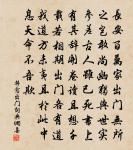 長安百萬家出門無所
之豈敢尚幽獨與世實
參差古人雖已死書上
有其辭開卷讀且想千
載若相期出門各有道
我道方未夷且於此中
息天命不吾欺
韓愈出門